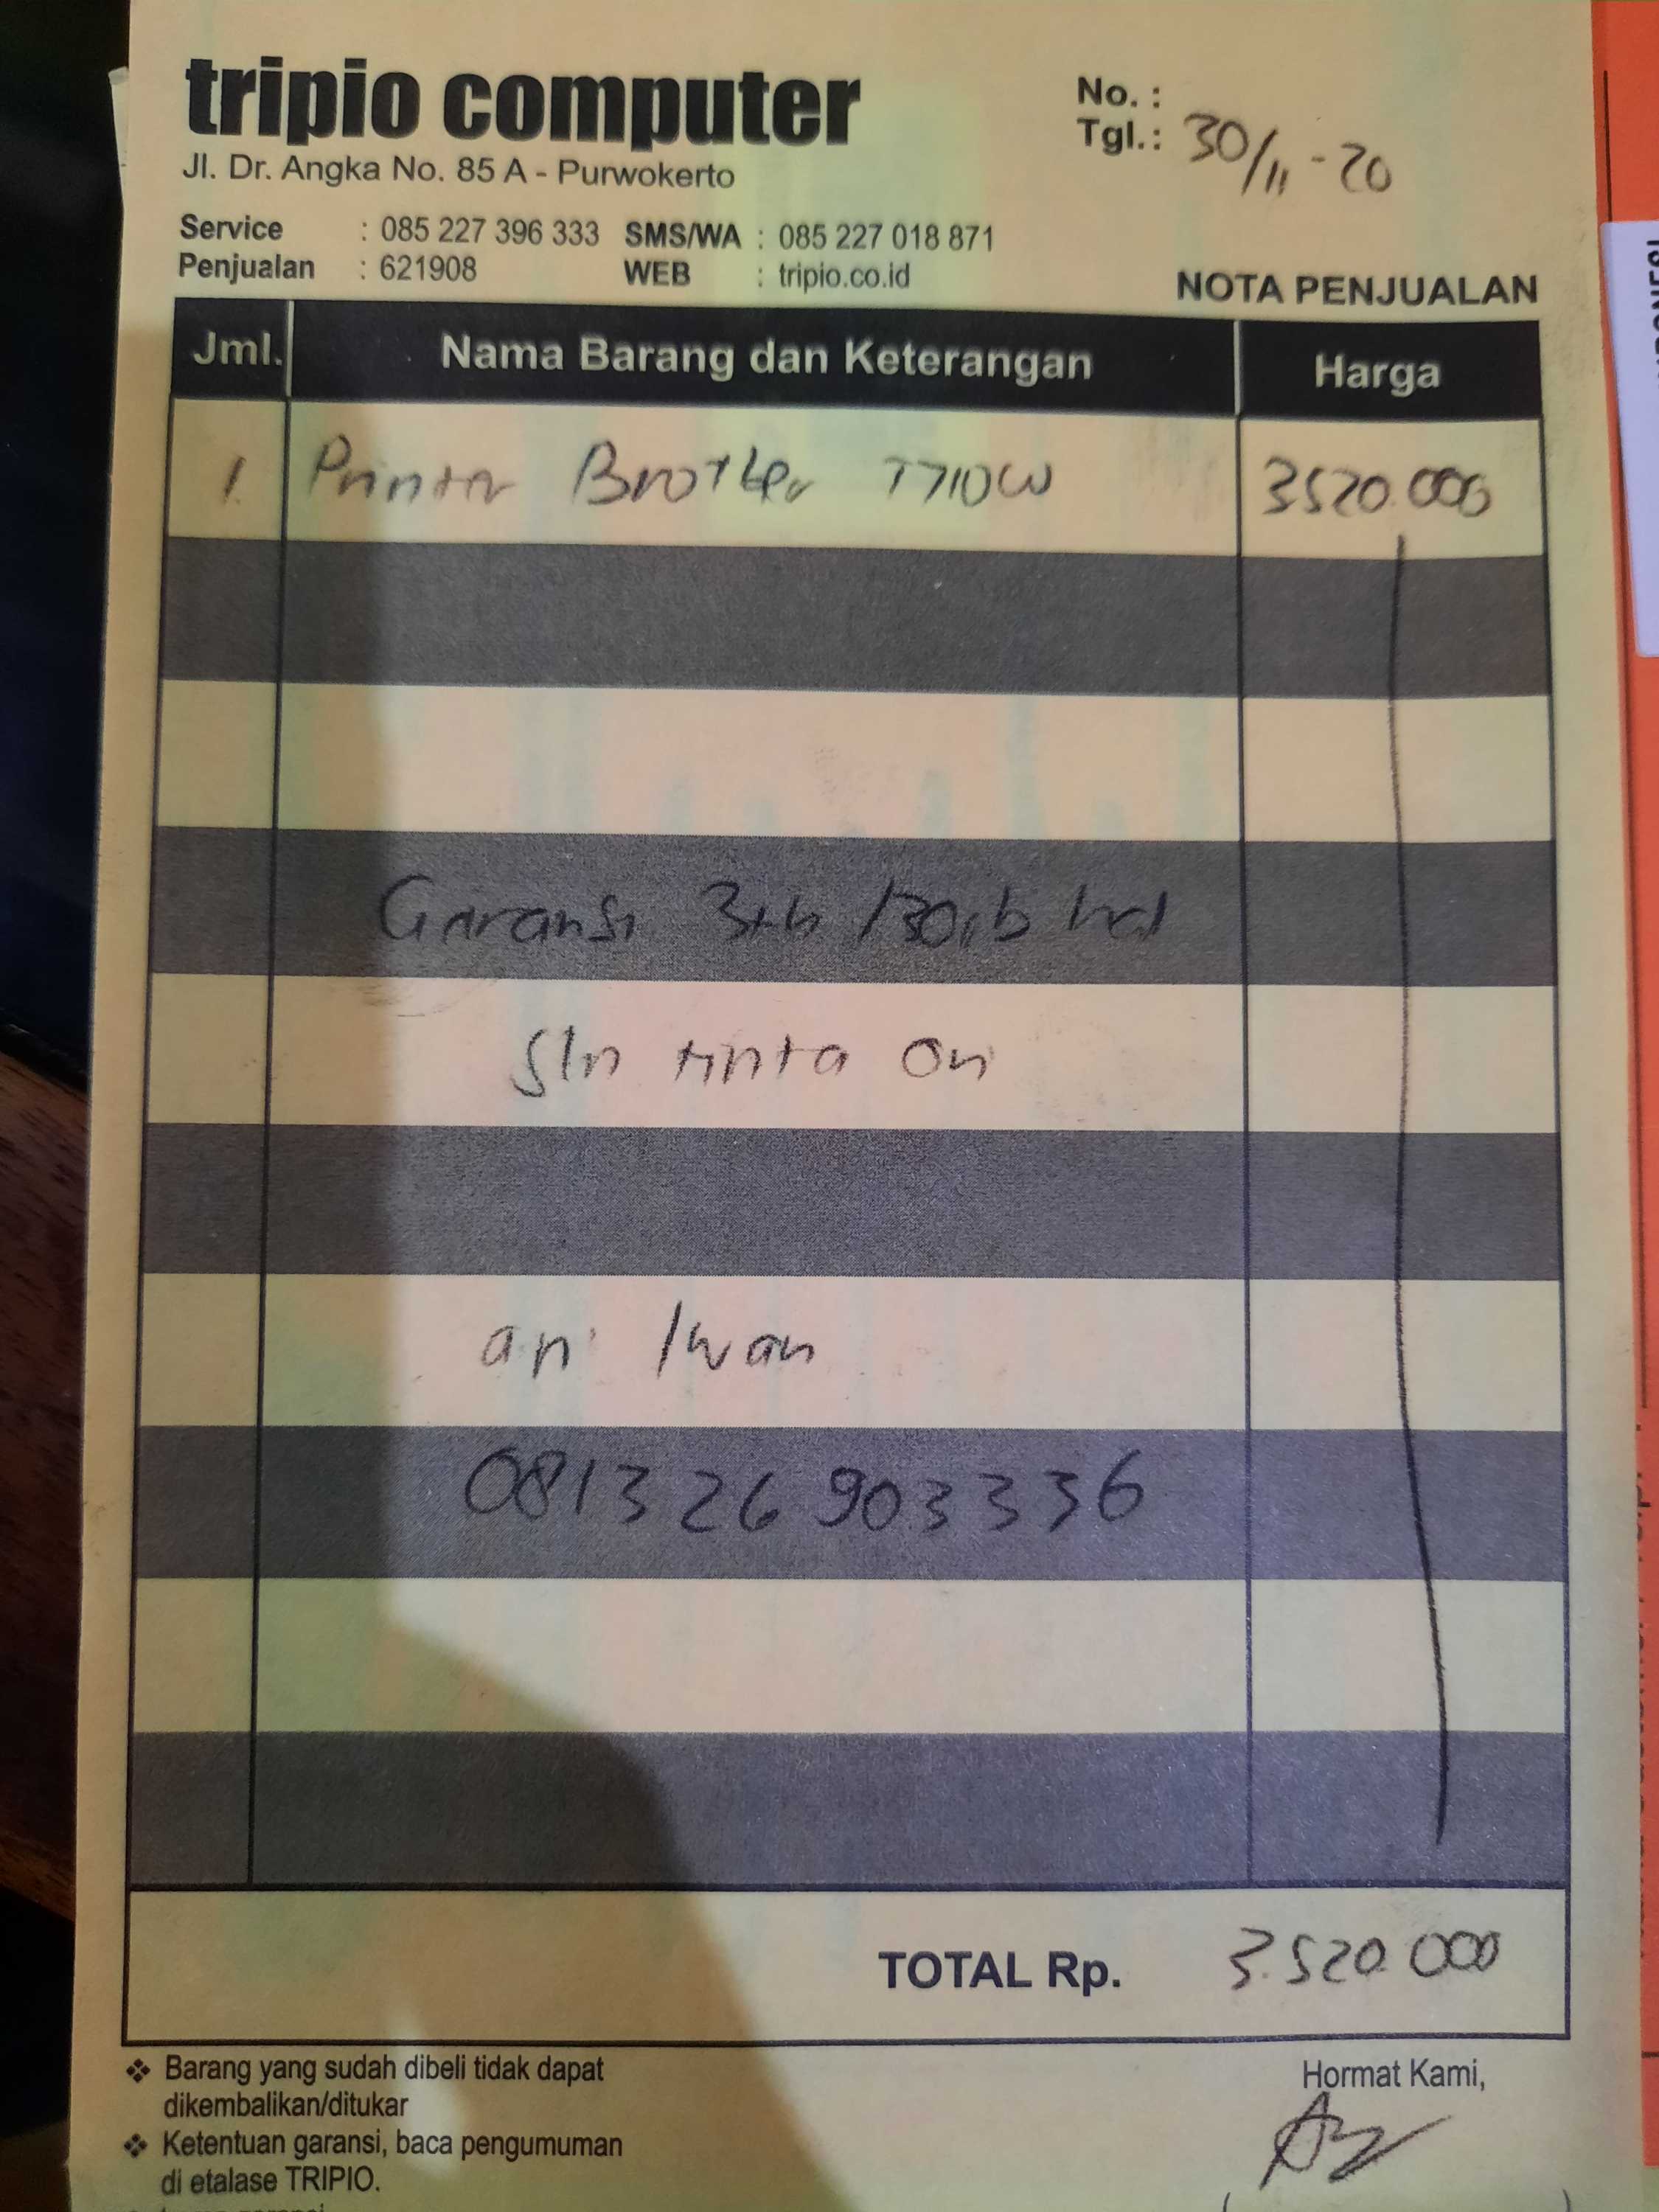 tripio computer
Jl. Dr. Angka No. 85 A - Purwokerto
No. :
Tgl.: 30/11 - 20
Service : 085 227 396 333 SMS/WA : 085 227 018 871
Penjualan : 621908 WEB : tripio.co.id
NOTA PENJUALAN
Jml. Nama Barang dan Keterangan Harga
1. Printer Brother T710W 3520.000
Garansi 3th /30rb hal
Sln tinta Ori
an Iwan
081326903336
TOTAL Rp. 3.520.000
❖ Barang yang sudah dibeli tidak dapat
dikembalikan/ditukar
❖ Ketentuan garansi, baca pengumuman
di etalase TRIPIO.
Hormat Kami,